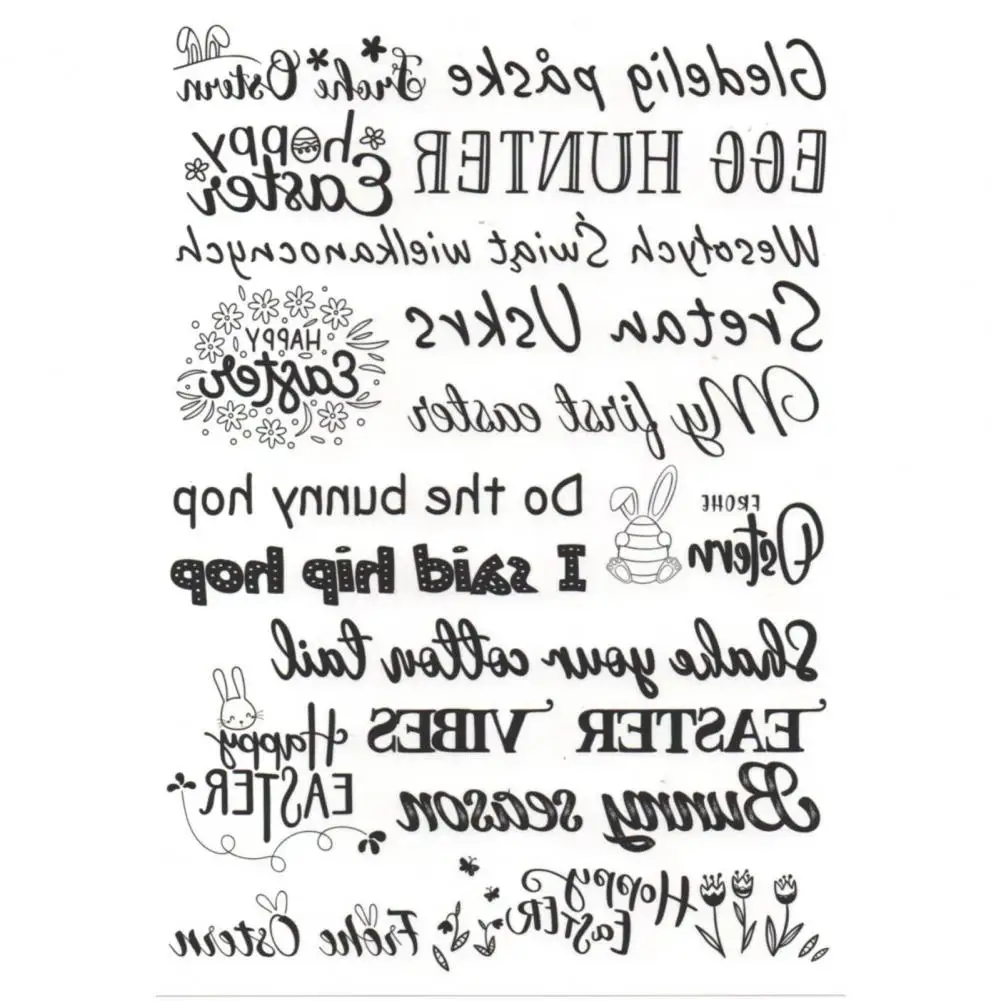 Gledelig påske
Frohe Ostern
EGG HUNTER
happy
Easter
Wesołych Świąt wielkanocnych
Sretan Uskrs
HAPPY
Easter
My first easter
FROHE
Ostern
Do the bunny hop
I said hip hop
Shake your cotton tail
EASTER VIBES
Happy
EASTER
Bunny season
Happy
EaSTER
Frohe Ostern